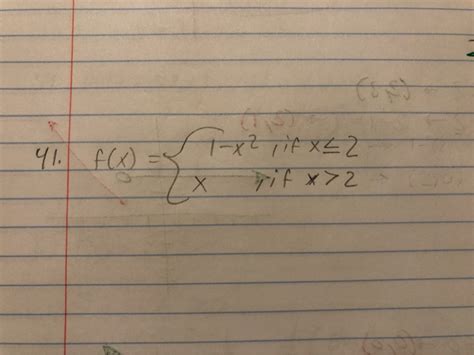 41. f(x) = { 1-x², if x≤2
x , if x>2